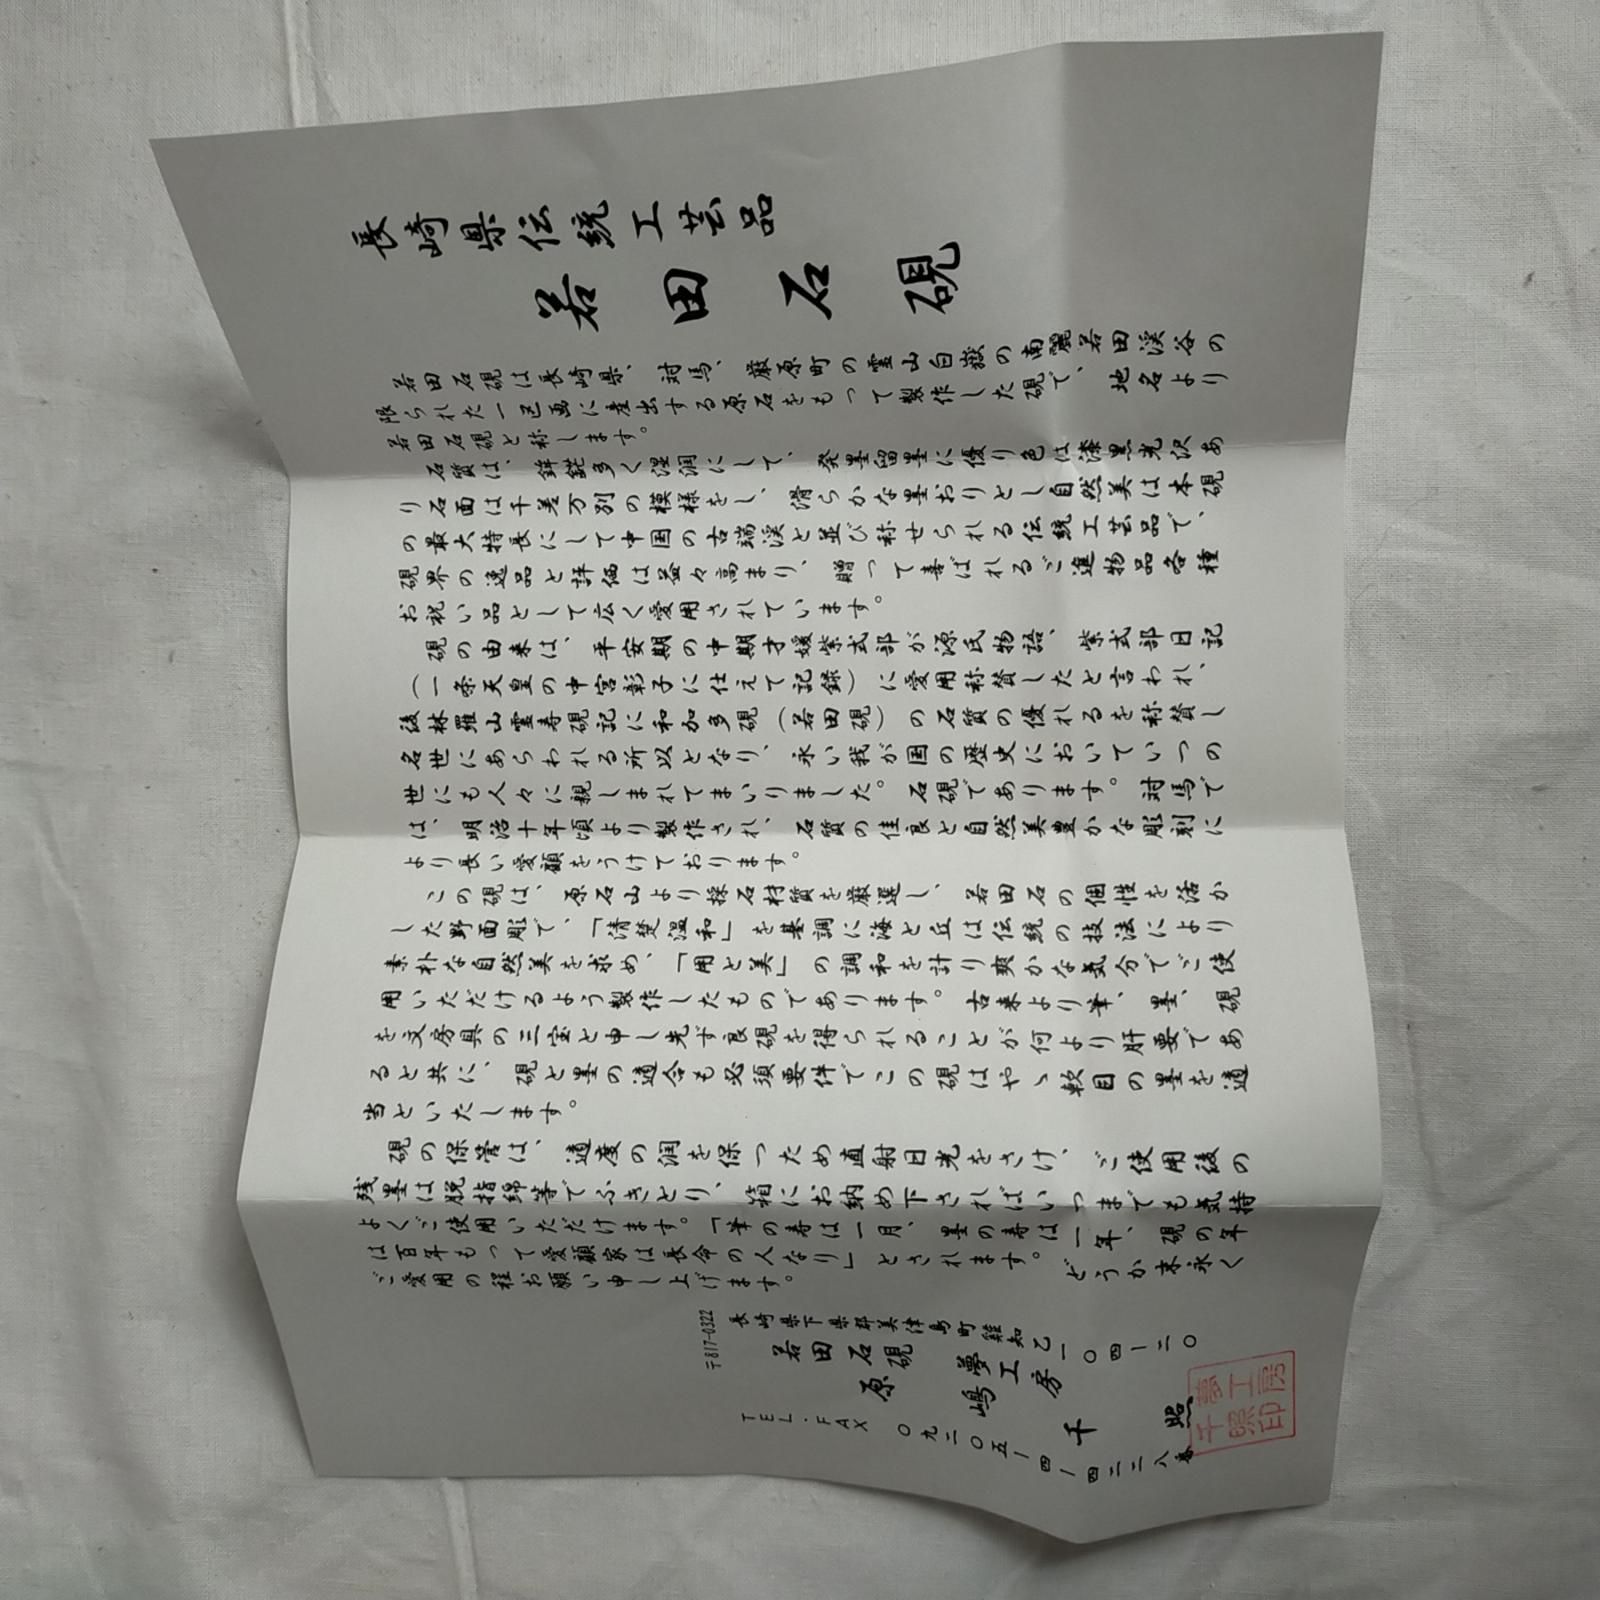 長崎県伝統工芸品
若田石硯
若田石硯は長崎県、対馬、厳原町の霊山白嶽の南麗若田渓谷の
限られた一区画に産出する原石をもって製作した硯で、地名より
若田石硯と称します。
石質は、鉾鋩多く湿潤にして、発墨留墨に優り色は漆黒光沢あ
り石面は千差万別の模様をし、滑らかな墨おりとし自然美は本硯
の最大特長にして中国の古端渓と並び称せられる伝統工芸品で、
硯界の逸品と評価は益々高まり、贈って喜ばれるご進物品各種
お祝い品として広く愛用されています。
硯の由来は、平安期の中期才媛紫式部が源氏物語、紫式部日記
(一条天皇の中宮彰子に仕えて記録)に愛用称賛したと言われ、
後林羅山霊寿硯記に和加多硯(若田硯)の石質の優れるを称賛し
名世にあらわれる所以となり、永い我が国の歴史においていつの
世にも人々に親しまれてまいりました。石硯であります。対馬で
は、明治十年頃より製作され、石質の佳良と自然美豊かな彫刻に
より長い愛顧をうけております。
この硯は、原石山より採石材質を厳選し、若田石の個性を活か
した野面彫で、「清楚温和」を基調に海と丘は伝統の技法により
素朴な自然美を求め、「用と美」の調和を計り爽かな気分でご使
用いただけるよう製作したものであります。古来より筆、墨、硯
を文房具の三宝と申し先ず良硯を得られることが何より肝要であ
ると共に、硯と墨の適合も必須要件でこの硯はやゝ軟目の墨を適
当といたします。
硯の保管は、適度の潤を保つため直射日光をさけ、ご使用後の
残墨は脱指綿等でふきとり、箱にお納め下さればいつまでも気持
よくご使用いただけます。「筆の寿は一月、墨の寿は一年、硯の年
は百年もって愛顧家は長命の人なり」とされます。どうか末永く
ご愛用の程お願い申し上げます。
〒817-0322
長崎県下県郡美津島町雞知乙一〇四-二〇
若田石硯 夢工房
原嶋千照
TEL・FAX 〇九二〇五-四-四二二八番
夢工房
千照印